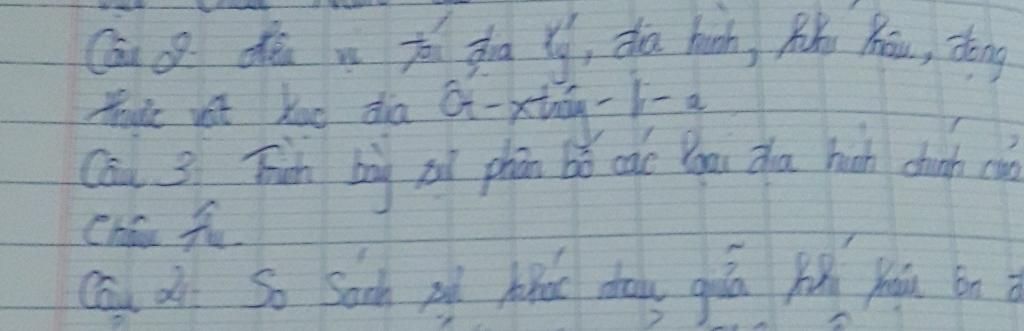 Câu 2. nêu vị trí địa lý, địa hình, khí hậu, động
thực vật lục địa Ô-xtrây-li-a
Câu 3. Trình bày sự phân bố các loại địa hình chính của
Châu Âu
Câu 4. So sánh sự khác nhau giữa khí hậu ôn đ